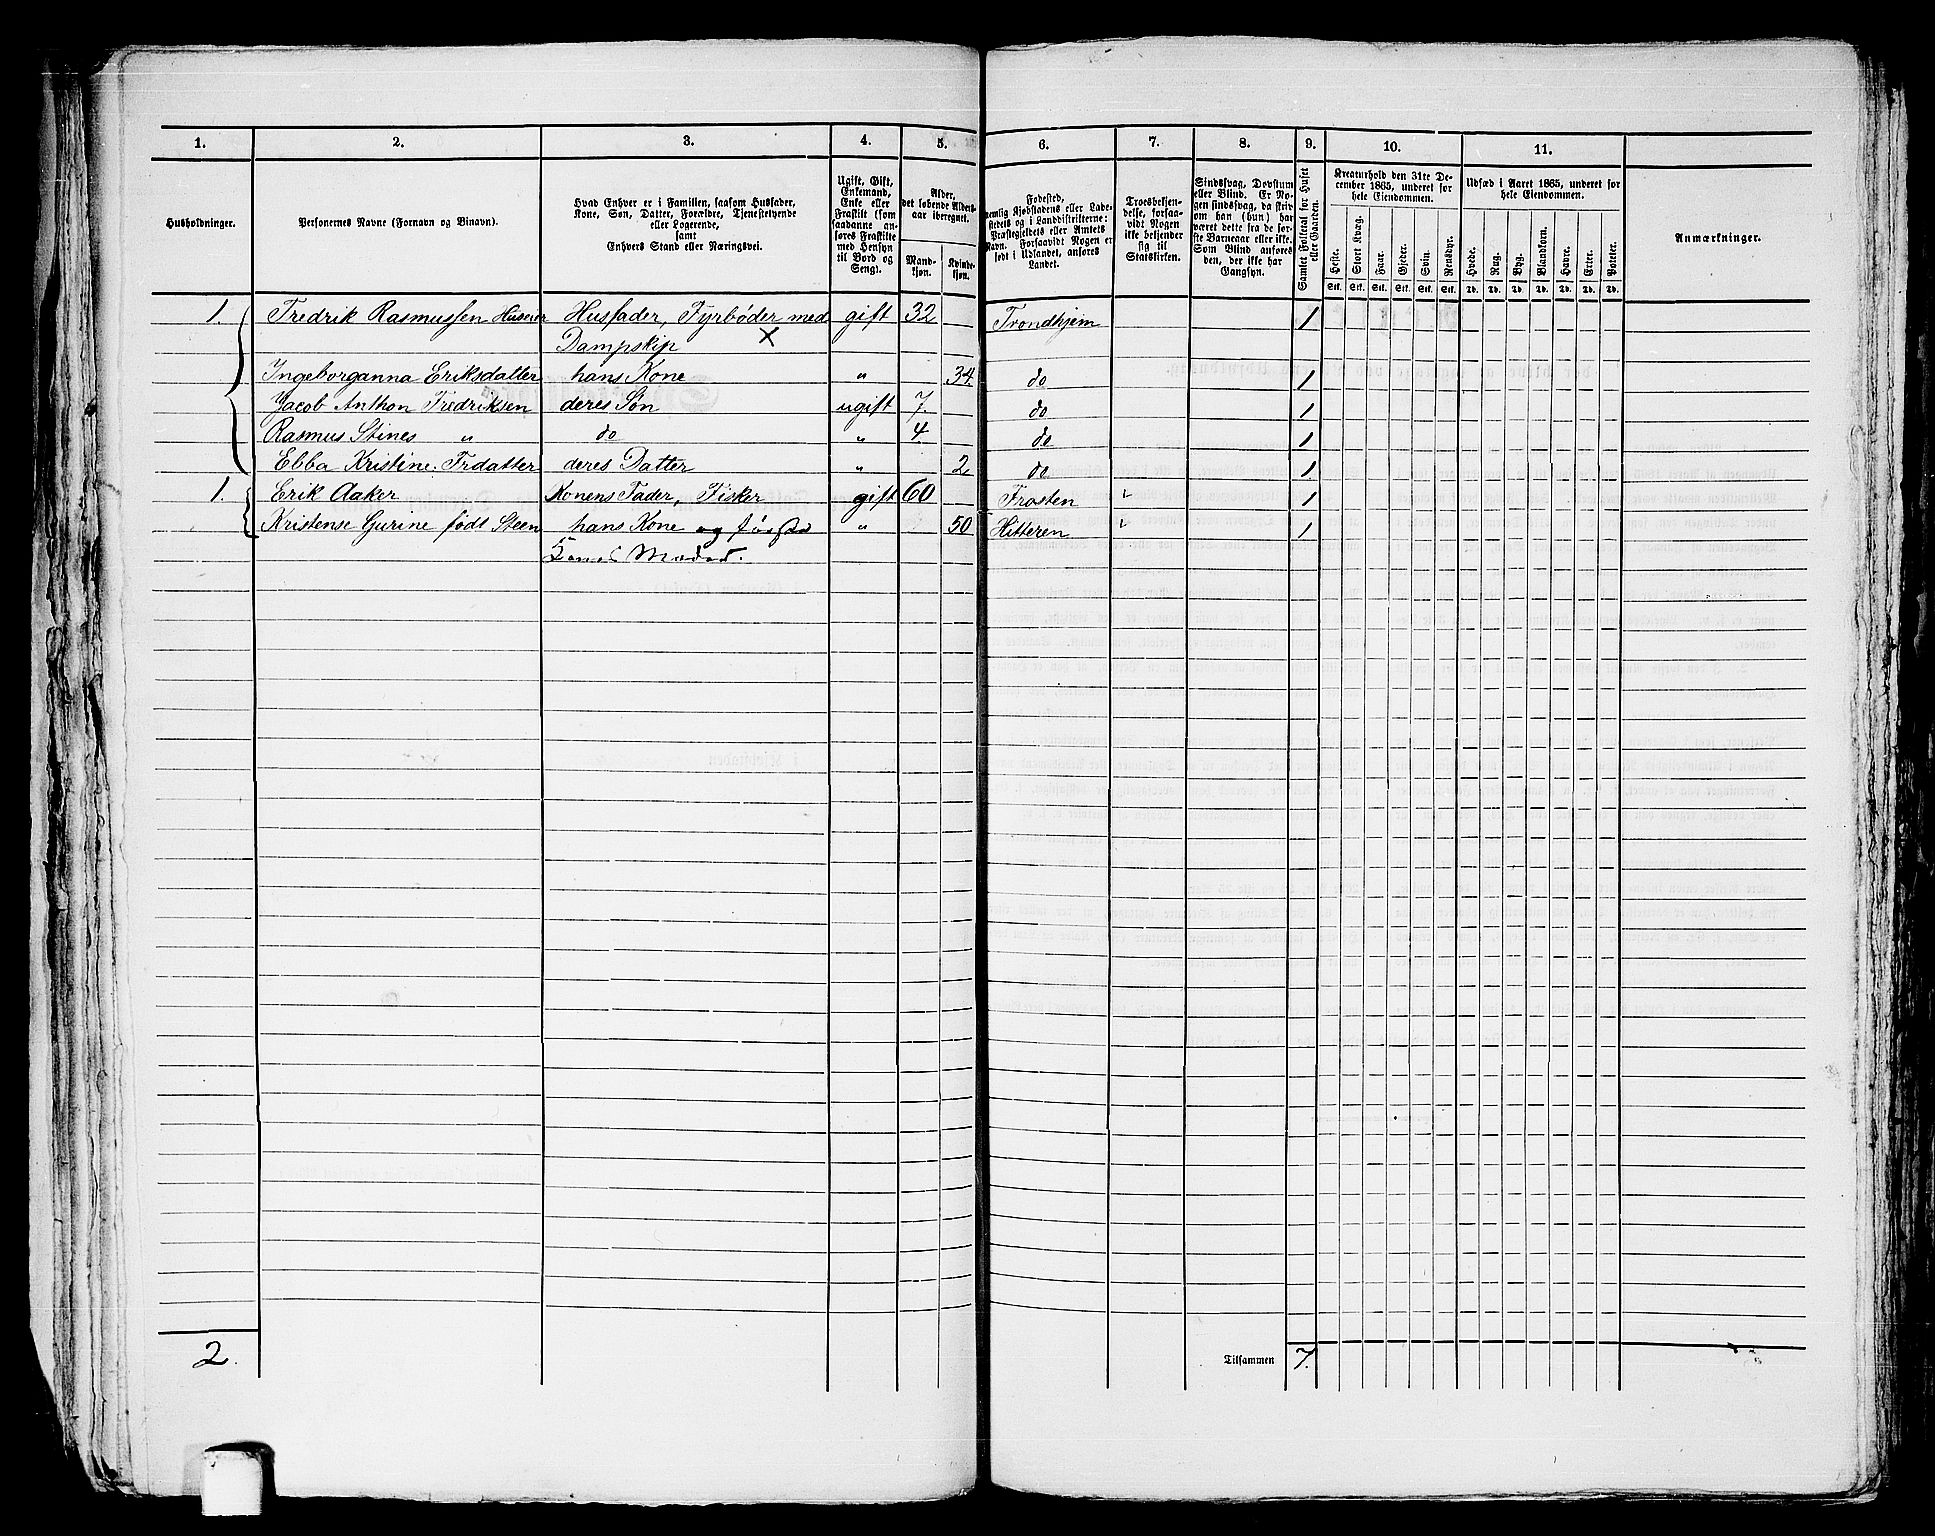 1. 2. 3. 4. 5. 6. 7. 8. 9. 10. 11.
Husholdninger.
Personernes Navne (Fornavn og Binavn).
Hvad Enhver er i Familien, saasom Husfader,
Kone, Søn, Datter, Forældre, Tjenestetyende
eller Logerende,
samt
Enhvers Stand eller Næringsvei.
Ugift, Gift,
Enkemand,
Enke eller
Fraskilt (som
saadanne an-
føres Fraskilte
med Hensyn
til Bord og
Seng).
Alder,
det løbende Alders-
aar iberegnet.
Mand-
kjøn.
Kvinde-
kjøn.
Fødested,
nemlig Kjøbstadens eller Lade-
stedets og i Landdistrikterne:
Præstegjeldets eller Amtets
Navn. Forsaavidt Nogen er
født i Udlandet, anføres
Landet.
Troesbekjen-
delse, forsaa-
vidt Nogen
ikke bekjender
sig til
Statskirken.
Sindssvag, Døvstum
eller Blind. Er No-
gen sindssvag, da skriv
om han (hun) har
været dette fra de før-
ste Barneaar eller ikke.
Som Blind anføres
den, der ikke har
Gangsyn.
Samlet Folketal for Huset
eller Gaarden.
Kreaturhold den 31te De-
cember 1865, underet for
hele Eiendommen.
Heste. Stort Kvæg. Faar. Gjeder. Svin. Rensdyr.
Stk. Stk. Stk. Stk. Stk. Stk.
Udsæd i Aaret 1865, underet for
hele Eiendommen.
Hvede. Rug. Byg. Blandkorn. Havre. Erter. Poteter.
Td. Td. Td. Td. Td. Td. Td.
Anmærkninger.
1. Fredrik Rasmussen Husfader, Fyrbøder med gift 32 Trondhjem 1
Dampskip X
Ingeborganna Eriksdatter hans Kone " 34 do 1
Jacob Anthon Fredriksen deres Søn ugift 7. do 1
Rasmus Stines " do " 4 do 1
Ebba Kristine Frdatter deres Datter " 2 do 1
1. Erik Aaker Konens Fader, Fisker gift 60 Frosten 1
Kristense Gurine født Steen hans Kone og første " 50 Hitteren 1
Kones Moder.
2. Tilsammen 7.